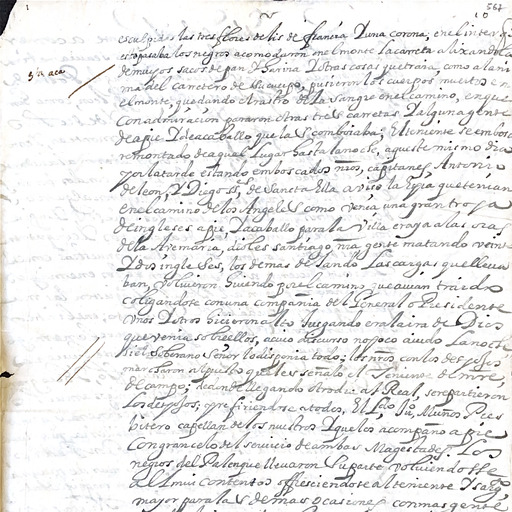 567
10
esculpidas las tres flores de lis de francia D una corona; en el inter q
estopasaba los negros acomodaron en el monte la carreta alixandola
de muchos sacos de pan D harina D otras cosas que traia, como al ani
ma del carretero de su cuerpo, pusieron los cuerpos muertos en
el monte, quedando el rastro de la sangre en el camino, en que
con admiracion pararon otras tres carretas D alguna gente
de a pie D de a caballo que las comboiaba; el teniente se embosco
remontado de aquel lugar hasta la noche, aqueste mismo dia
por la tarde estando emboscados nros, capitanes Antonio
de leon, D Diego de Sancta Ella aviso la espia que tenian
en el camino de los Angeles como venia una gran tropa
de ingleses a pie, D a caballo para la Villa
de la Aremaria, diles santiago, nra gente matando veinte
D dos ingleses, los demas dejando las cargas que lleva
ban, volvieron huiendo por el camino que avian traido
coligandose con una compañia del General o Presidente
unos D otros hicieron alto juzgando era la ira de Dios
que venia sobre ellos, a cuio discurso no poco aiudo la noche
el Soberano Señor lo disponia todo; los nros con los despojos
marcharon al puesto que les señalo el Teniente de mre,
de campo; de donde llegando otro dia al Real, se repartieron
los despojos, prefiriendose a todos, El Ldo Ju, Muñoz Pres
bitero capellan de los nuestros D que los acompaño a pie
con gran celo del servicio de ambas Magestades. Los
negros del Palenque llevaron su parte volviendose
al mui contentos offreciendose al teniente
mayor para las demas ocasiones con mas gente